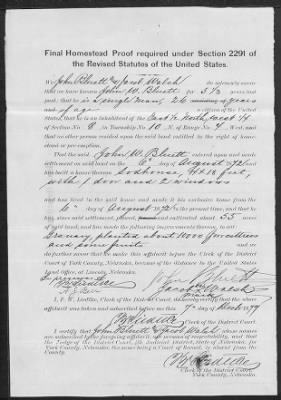 Final Homestead Proof required under Section 2291 of
the Revised Statutes of the United States.
We John Bluett & Jacob Walsh do solemnly swear
that we have known John W. Bluett for 5 1/2 years
last past; that he is a single man, 26 years
of age a citizen of the United
States; that he is an inhabitant of the East 1/2 North 1/4
of Section No. 8, in Township No. 10, N. of Range No. 4, West, and
that no other person resided upon the said land entitled to the right of home-
stead or pre-emption.
That the said John W. Bluett entered upon and made
settlement on said land on the 6th day of August, 1872, and
has built a house thereon Sodhouse, 14x18 feet,
with 1 door and 2 windows
and has lived in the said house and made it his exclusive home from the
6th day of August 1872 to the present time, and that he
has, since said settlement, plowed, and cultivated about 55
acres of said land, and has made the following improvements thereon, to wit:
Granary, planted about 11000 forest trees
and some fruits and we do
further swear that we make this affidavit before the Clerk of the District
Court of York County, Nebraska, because of the distance to the United States
Land office, at Lincoln, Nebraska.
John Bluett
Jacob Walsh
I, F. W. Liedtke, Clerk of the District Court, do hereby certify that the above
affidavit was taken and subscribed before me this 7th day of 1879
FW Liedtke
Clerk of the District Court.
I certify that John Bluett & Jacob Walsh whose names
are subscribed to the foregoing affidavit, are persons of respectability, and that
the Judge of the District Court, Judicial District, State of Nebraska, for
York County, Nebraska, the same being a Court of Record, is absent from the
County.
FW Liedtke
Clerk of the District Court,
York County, Nebraska.